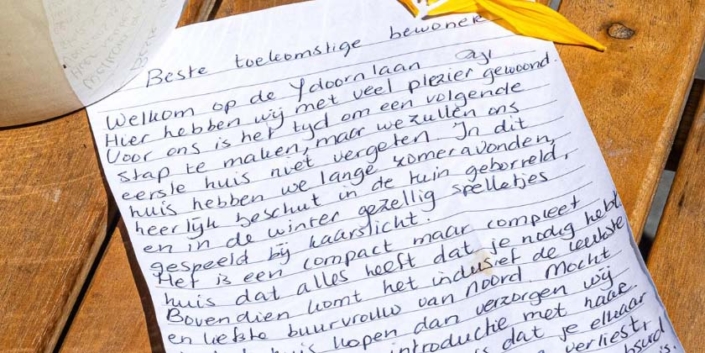 Beste toekomstige bewoner
Welkom op de Ydoornlaan
Hier hebben wij met veel plezier gewoond.
Voor ons is het tyd om een volgende
stap te maken, maar we zullen ons
eerste huis niet vergeten. In dit
huis hebben we lange zomeravonden,
heerlijk beschut in de tuin geborreld,
en in de winter gezellig spelletjes
gespeeld bij kaarslicht.
Het is een compact maar compleet
huis dat alles heeft dat je nodig hebt.
Bovendien komt het inclusief de leukste
en liefste buurvrouw van Noord. Mocht
huis kopen dan verzorgen wij
introductie met haar.
is dat je elkaar
verliest,